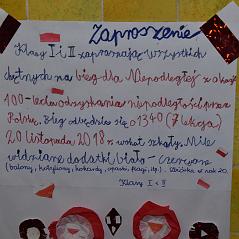 Zaproszenie
Klasy I i II zapraszają wszystkich
chętnych na bieg dla Niepodległej z okazji
100-lecia odzyskania niepodległości przez
Polskę. Bieg odbędzie się o 13:40 (7 lekcja)
20 listopada 2018 r. wokół szkoły. Mile
widziane dodatki biało-czerwone
(balony, kotyliony, kokardy, opaski, flagi, itp.). Zbiórka w sali 20.
Klasy I i II